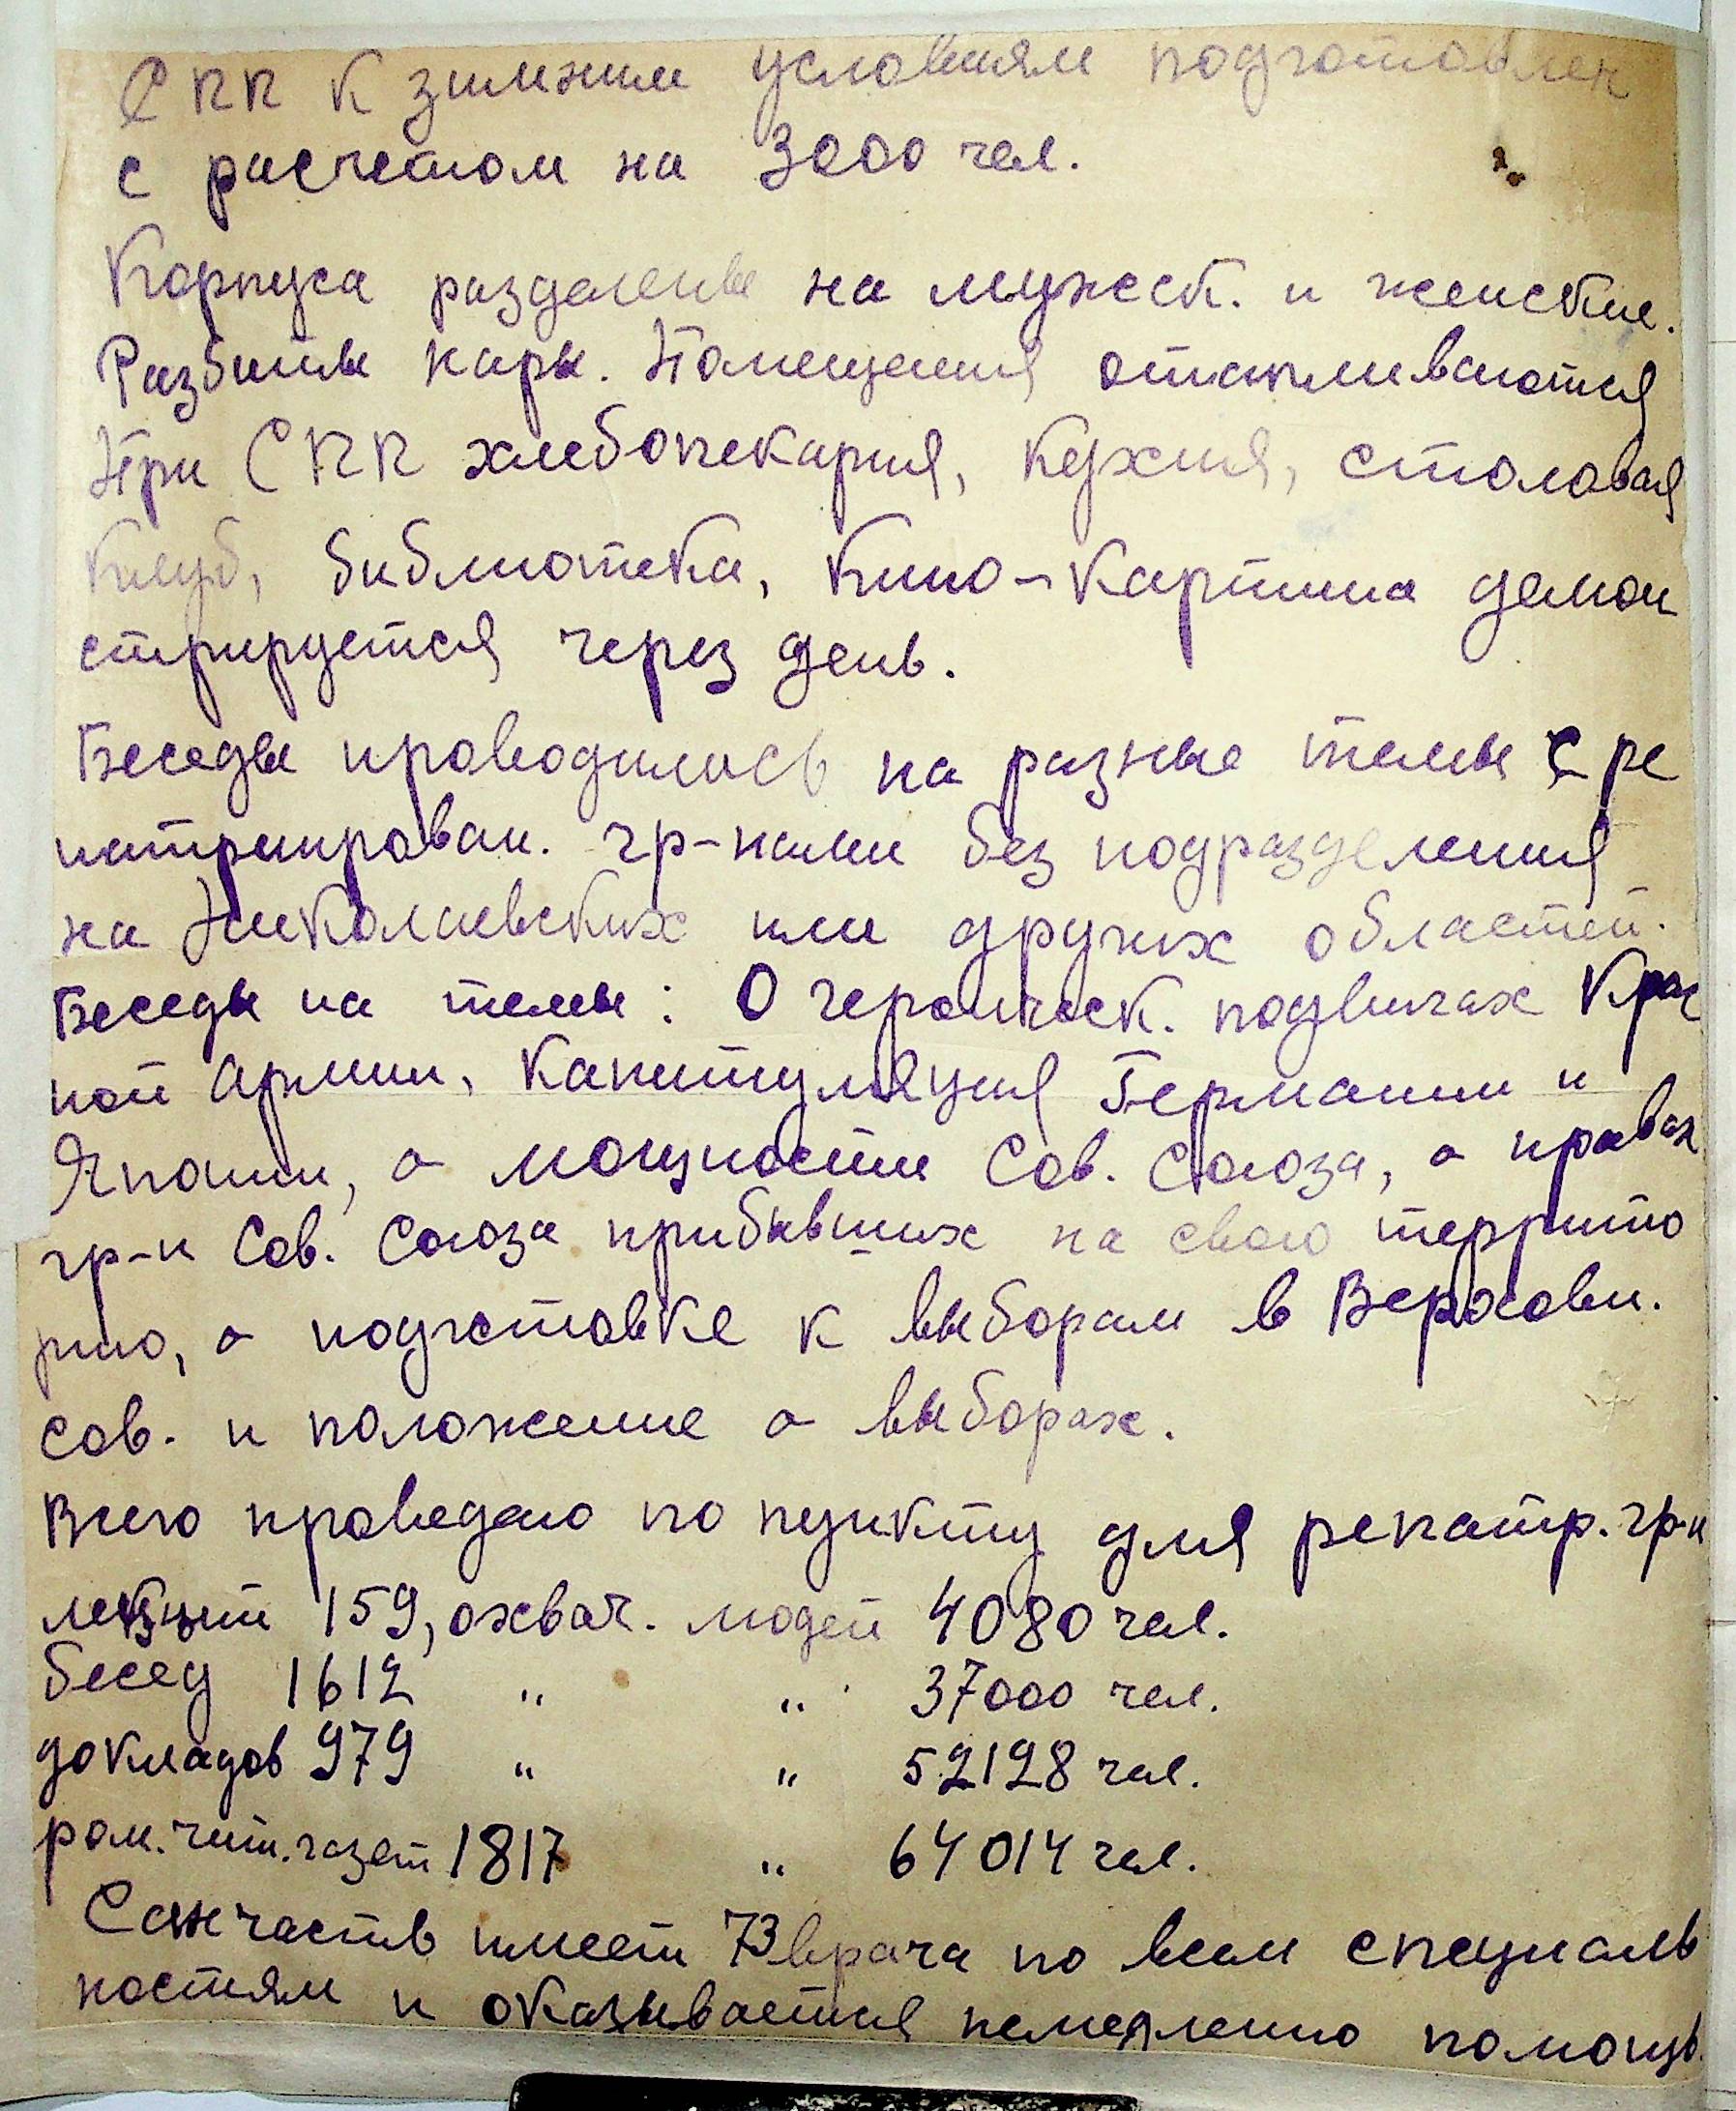 СПП к зимним условиям подготовлен
с расчетом на 3000 чел.
Корпуса разделены на мужск. и женские.
Разбиты нары. Помещения отапливаются
При СПП хлебопекарня, кухня, столовая
клуб, библиотека, кино-картина демон
стрируется через день.
Беседы проводились на разные темы с ре
патриирован. гр-нами без подразделения
на Николаевских или других областей.
Беседы на темы: О героическ. подвигах Крас
ной Армии, капитуляция Германии и
Японии, о мощности Сов. Союза, о правах
гр-н Сов. Союза прибывших на свою террито
рию, о подготовке к выборам в Верховн.
сов. и положение о выборах.
Всего проведено по пункту для репатр. гр-н
лекций 159, охвач. людей 4080 чел.
бесед 1612 " " 37000 чел.
докладов 979 " " 52128 чел.
гром. чит. газет 1817 " 64014 чел.
Санчасть имеет 73 врача по всем специаль
ностям и оказывается немедленно помощь.